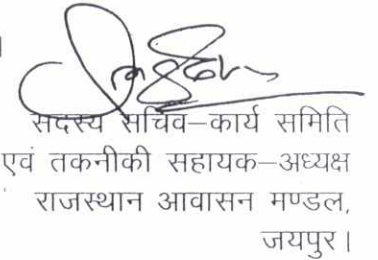 सदस्य सचिव–कार्य समिति
एवं तकनीकी सहायक–अध्यक्ष
राजस्थान आवासन मण्डल,
जयपुर।